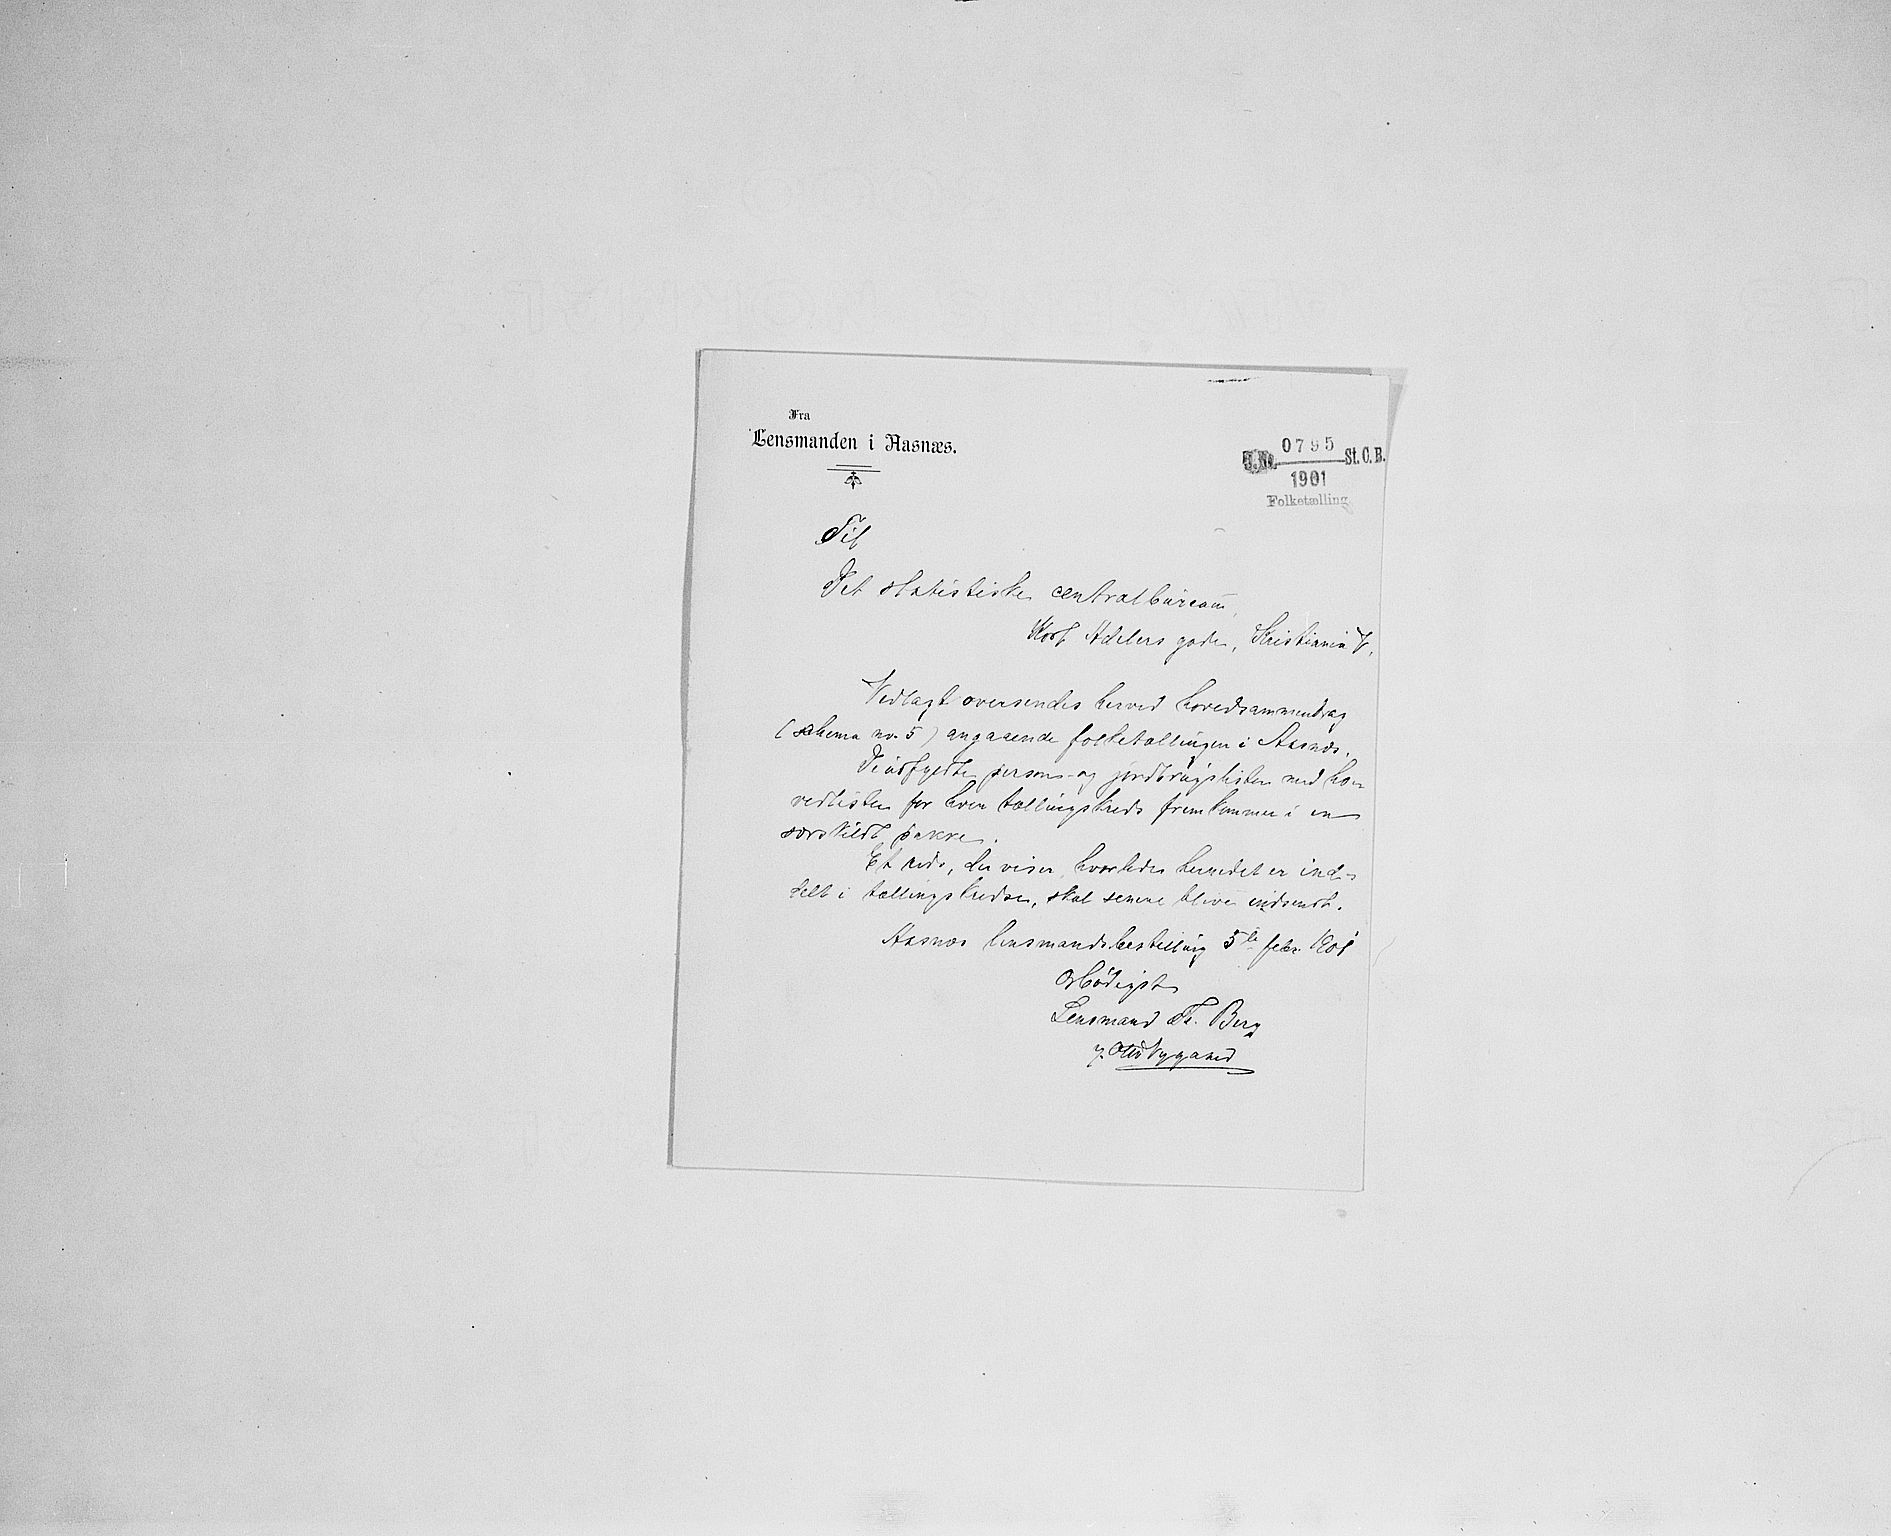 Fra
Lensmanden i Aasnæs.
J. No. 0795 St. C. B.
1901
Folketælling
Til
Det statistiske centralbureau,
Kort Adelers gade, Kristiania V.
Vedlagt oversendes herved hovedsammendrag
(schema no. 5) angaaende folketællingen i Aasnæs.
De udfyldte person- og jordbrugslister med ho-
vedlister for hver tællingskreds fremkommer i en
særskildt pakke.
Et rids, der viser, hvorledes herredet er ind-
delt i tællingskredse, skal senere blive indsendt.
Aasnæs lensmandsbestilling 5te febr. 1901
Ærbödigst
Lensmand Th. Berg